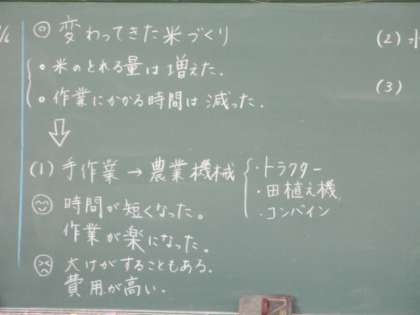 ◎ 変わってきた米づくり
○ 米のとれる量は増えた.
○ 作業にかかる時間は減った.
⇩
(1) 手作業 → 農業機械
・トラクター
・田植え機
・コンバイン
時間が短くなった。
作業が楽になった。
大けがをすることもある.
費用が高い.
(2)
(3)